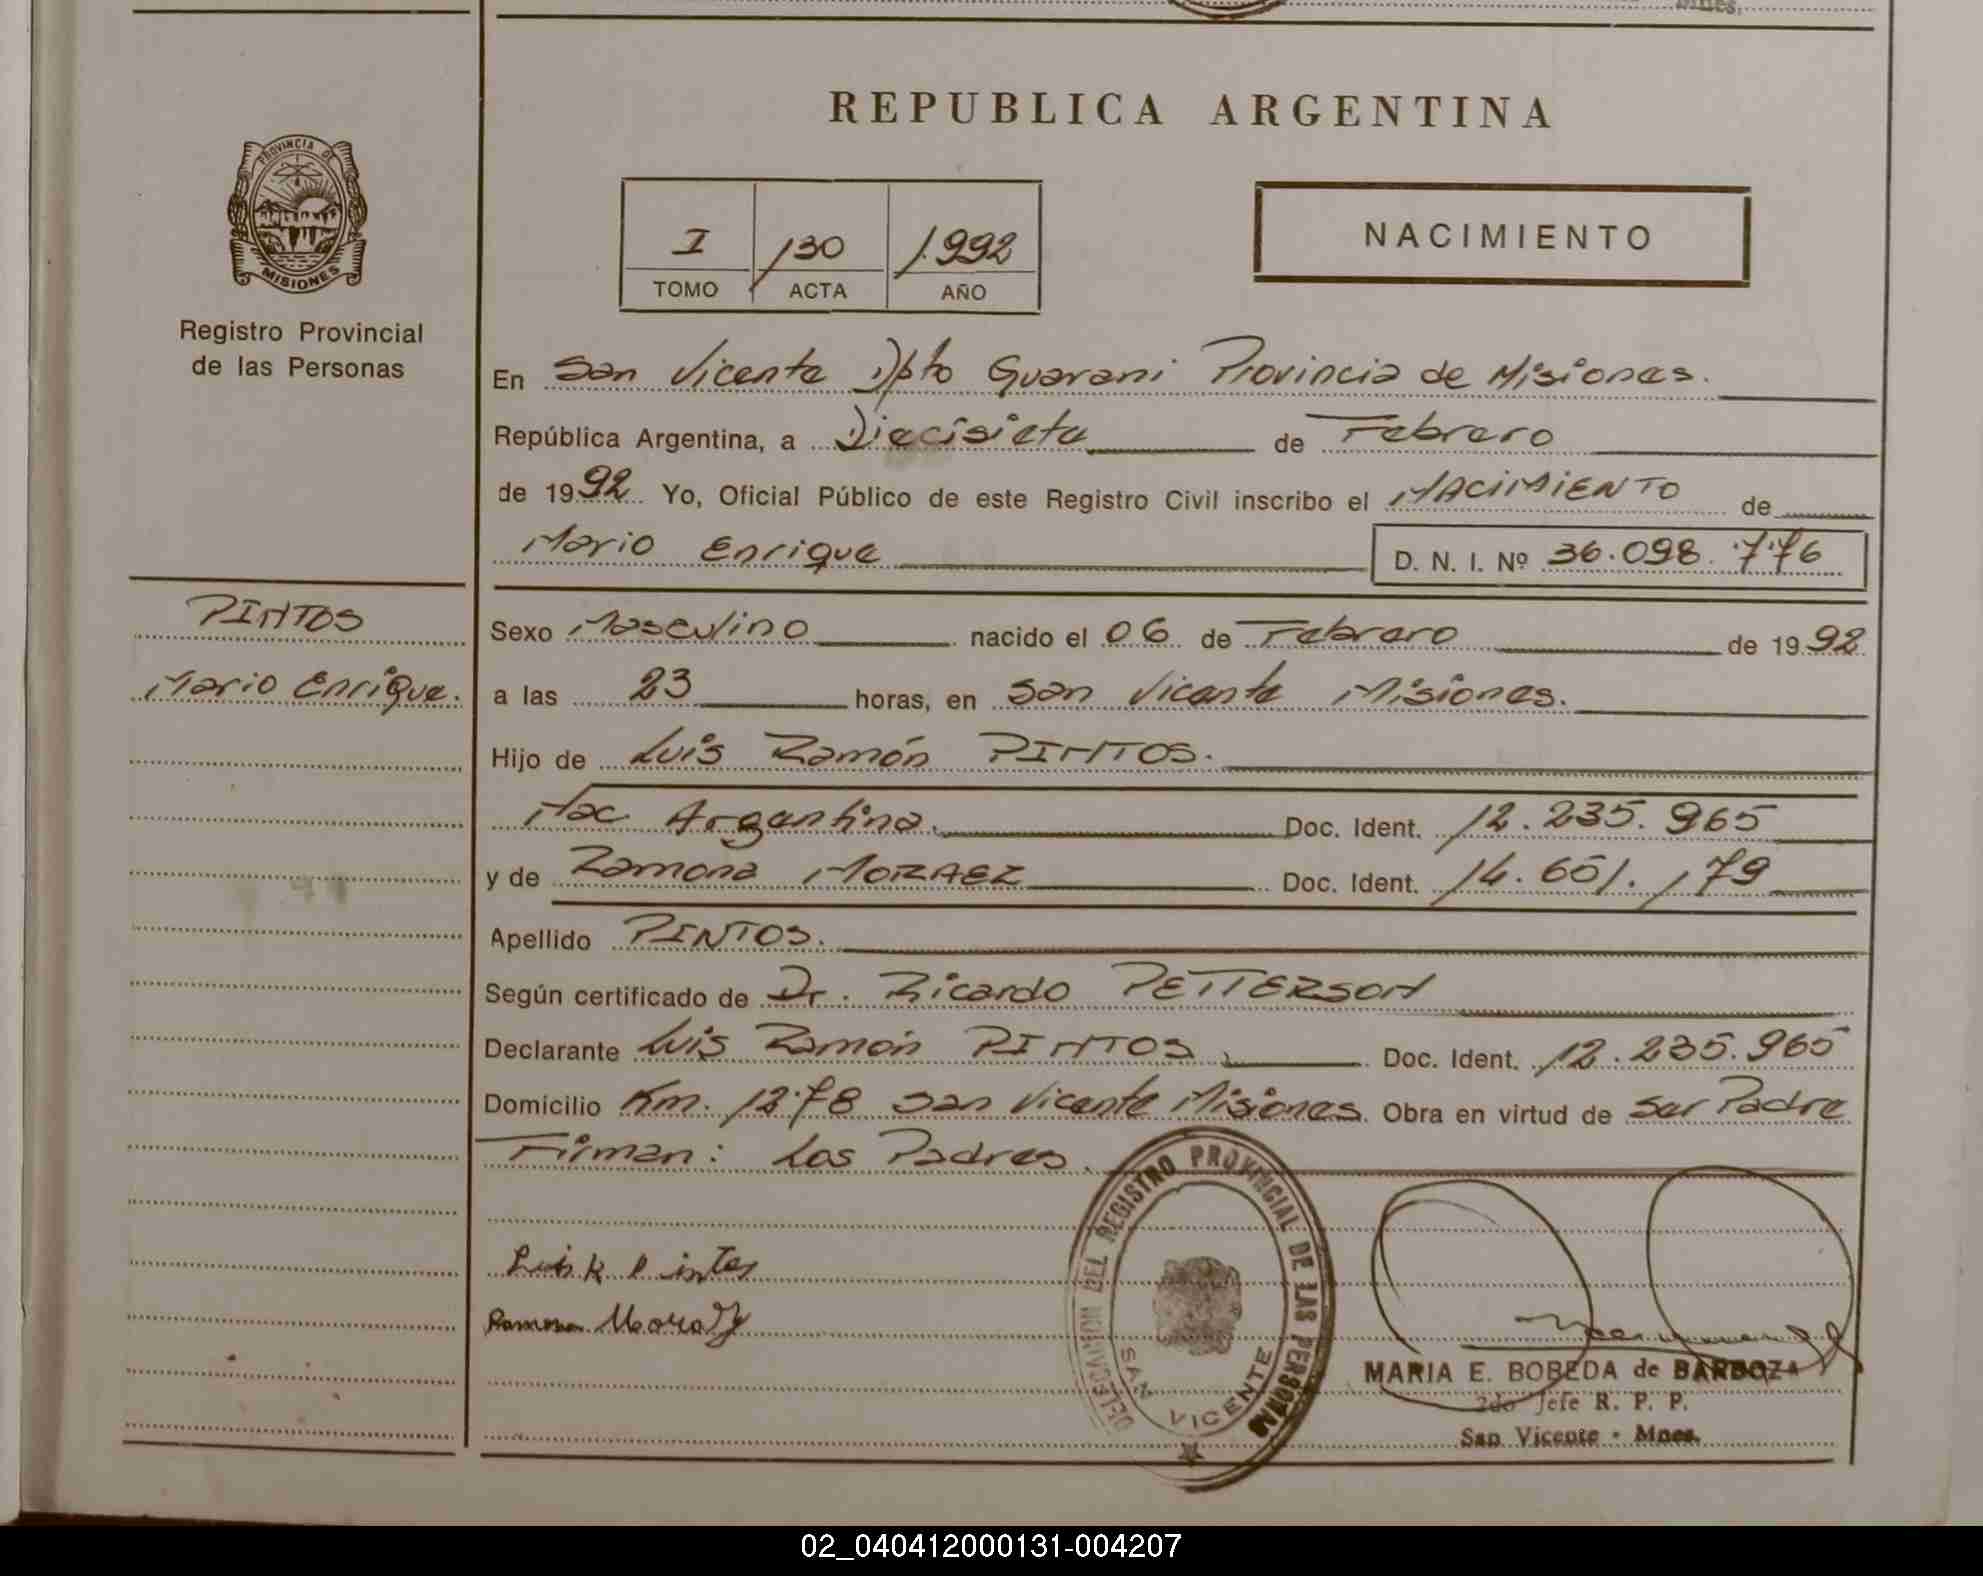 Mnes.
REPUBLICA ARGENTINA
PROVINCIA DE
MISIONES
Registro Provincial
de las Personas
I 130 1.992
TOMO ACTA AÑO
NACIMIENTO
En San Vicente Dpto Guarani Provincia de Misiones.
República Argentina, a Diecisiete de Febrero
de 1992 Yo, Oficial Público de este Registro Civil inscribo el NACIMIENTO de
Mario Enrique D. N. I. Nº 36.098.776
PINTOS
Mario Enrique.
Sexo Masculino nacido el 06 de Febrero de 1992
a las 23 horas, en San Vicente Misiones.
Hijo de Luis Ramón PINTOS.
Nac Argentina. Doc. Ident. 12.235.965
y de Ramona MORAEZ Doc. Ident. 14.651.179
Apellido PINTOS.
Según certificado de Dr. Ricardo PETTERSON
Declarante Luis Ramón PINTOS Doc. Ident. 12.235.965
Domicilio Km. 1278 San Vicente Misiones. Obra en virtud de Ser Padre
Firman: Los Padres.
Luis R Pintos
Ramona
DELEGACION DEL REGISTRO PROVINCIAL DE LAS PERSONAS
SAN VICENTE
MARIA E. BOBEDA de BARBOZA
2do Jefe R. P. P.
San Vicente - Mnes.
02_040412000131-004207